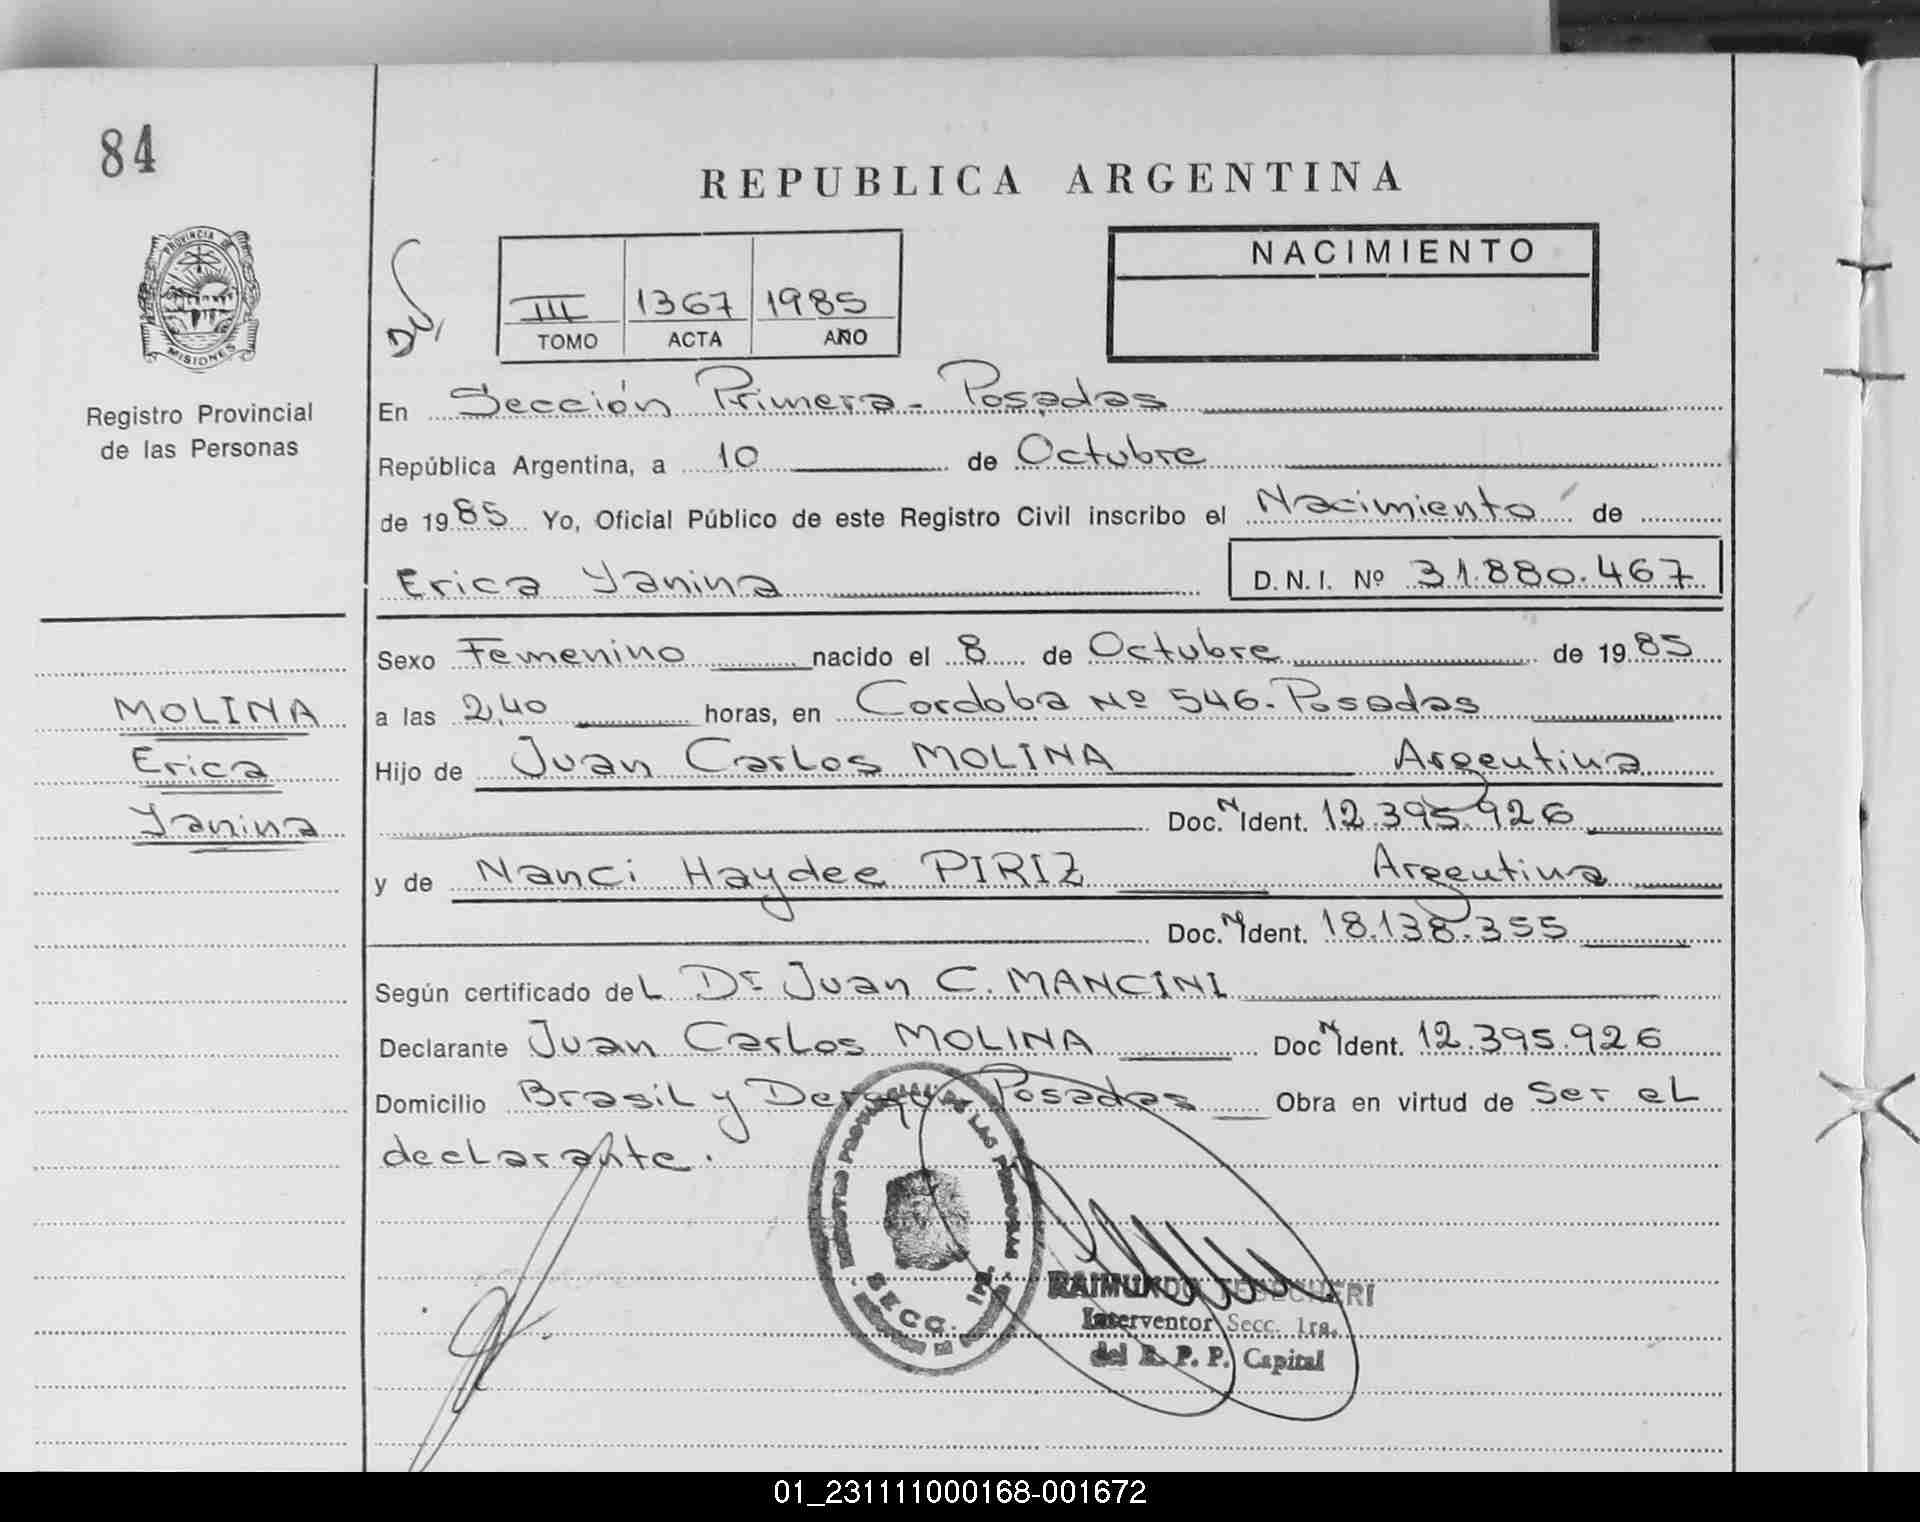 84
REPUBLICA ARGENTINA
PROVINCIA DE
MISIONES
Registro Provincial
de las Personas
III 1367 1985
TOMO ACTA AÑO
NACIMIENTO
En Sección Primera - Posadas
República Argentina, a 10 de Octubre
de 1985 Yo, Oficial Público de este Registro Civil inscribo el Nacimiento de
Erica Yanina D.N.I. Nº 31.880.467
Sexo Femenino nacido el 8 de Octubre de 1985
MOLINA
Erica
Yanina
a las 2,40 horas, en Cordoba Nº 546. Posadas
Hijo de Juan Carlos MOLINA Argentina
Doc. N Ident. 12.395.926
y de Nanci Haydee PIRIZ Argentina
Doc. N Ident. 18.138.355
Según certificado del Dr. Juan C. MANCINI
Declarante Juan Carlos MOLINA Doc N Ident. 12.395.926
Domicilio Brasil y Posadas Obra en virtud de Ser el
declarante.
DE LAS PERSONAS
SECC. 1ra.
RAIMUNDO
Interventor Secc. 1ra.
del R. P. P. Capital
01_231111000168-001672